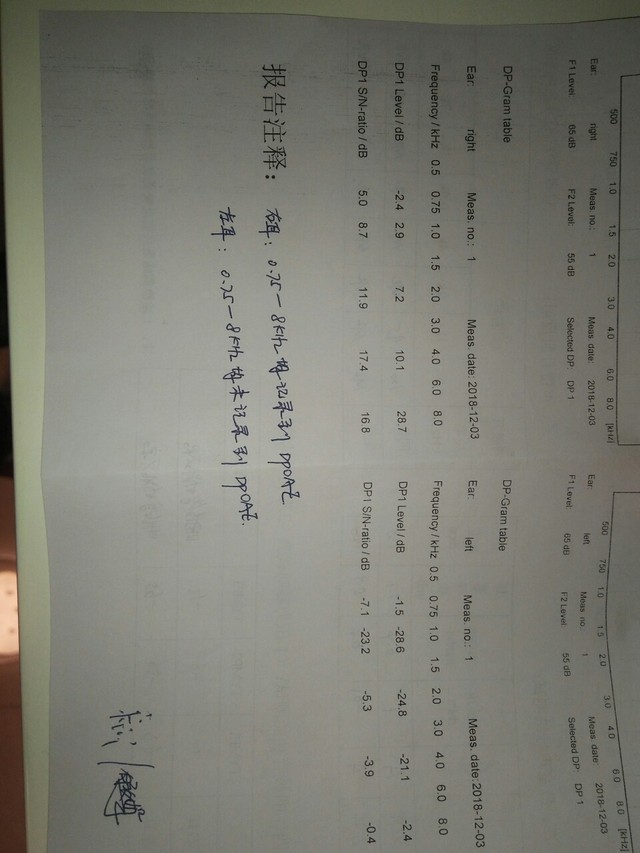 500 750 1.0 1.5 2.0 3.0 4.0 6.0 8.0 [kHz]
Ear: right Meas. no.: 1 Meas. date: 2018-12-03
F1 Level: 65 dB F2 Level: 55 dB Selected DP: DP 1
DP-Gram table
Ear: right Meas. no.: 1 Meas. date: 2018-12-03
Frequency / kHz 0.5 0.75 1.0 1.5 2.0 3.0 4.0 6.0 8.0
DP1 Level / dB -2.4 2.9 7.2 10.1 28.7
DP1 S/N-ratio / dB 5.0 8.7 11.9 17.4 16.8
500 750 1.0 1.5 2.0 3.0 4.0 6.0 8.0 [kHz]
Ear: left Meas. no.: 1 Meas. date: 2018-12-03
F1 Level: 65 dB F2 Level: 55 dB Selected DP: DP 1
DP-Gram table
Ear: left Meas. no.: 1 Meas. date: 2018-12-03
Frequency / kHz 0.5 0.75 1.0 1.5 2.0 3.0 4.0 6.0 8.0
DP1 Level / dB -1.5 -28.6 -24.8 -21.1 -2.4
DP1 S/N-ratio / dB -7.1 -23.2 -5.3 -3.9 -0.4
报告注释： 右耳：0.75—8KHz 均记录到 DPOAE
左耳：0.75—8KHz 均未记录到 DPOAE.